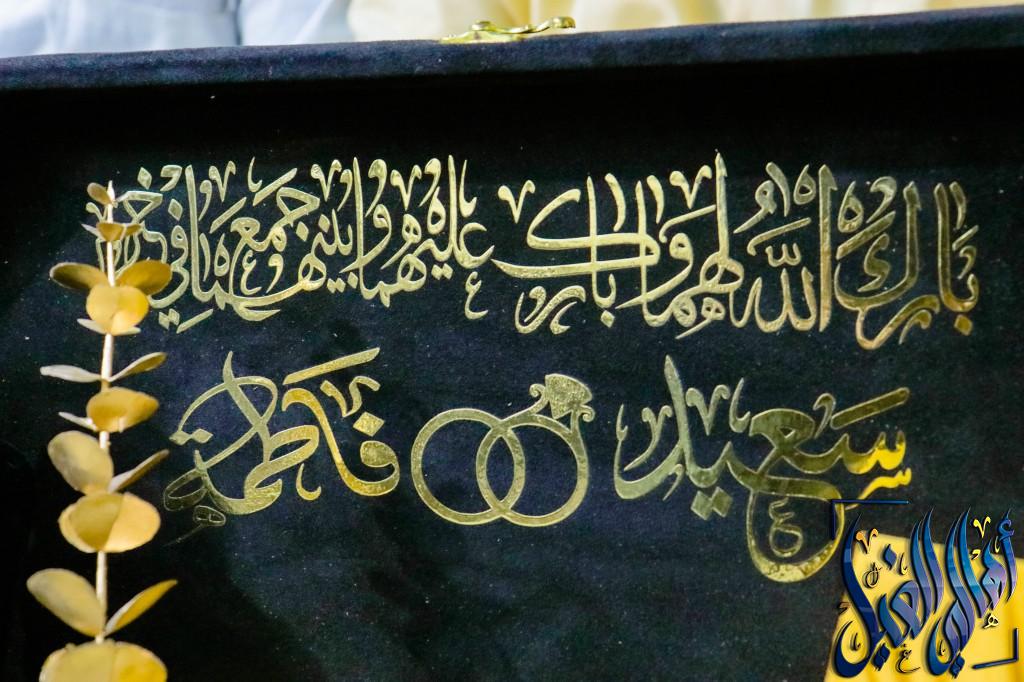 بارك الله لهما وبارك عليهما وجمع بينهما في خير
سعيد فاطمة